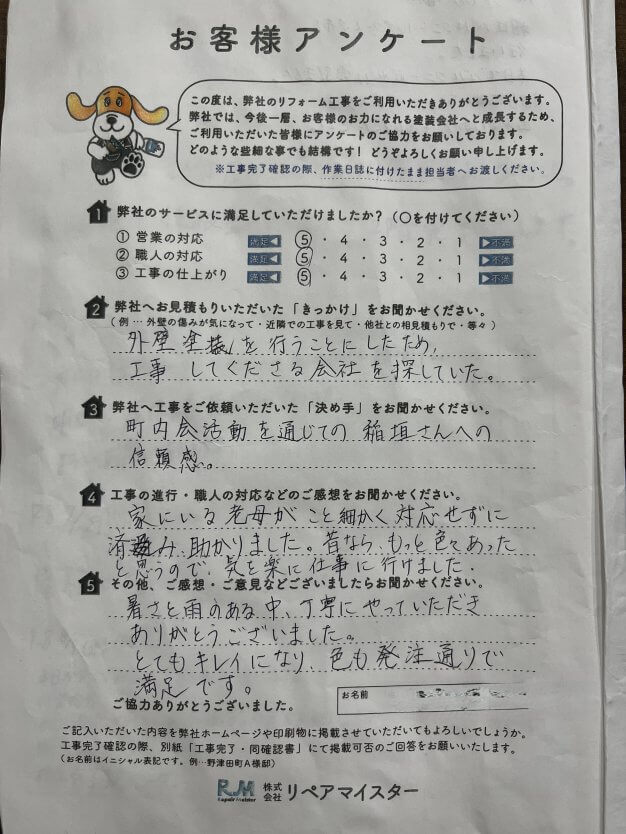 お客様アンケート
この度は、弊社のリフォーム工事をご利用いただきありがとうございます。
弊社では、今後一層、お客様のお力になれる塗装会社へと成長するため、
ご利用いただいた皆様にアンケートのご協力をお願いしております。
どのような些細な事でも結構です！どうぞよろしくお願い申し上げます。
※工事完了確認の際、作業日誌に付けたまま担当者へお渡しください。
1 弊社のサービスに満足していただけましたか？（〇を付けてください）
① 営業の対応 満足 5・4・3・2・1 不満
② 職人の対応 満足 5・4・3・2・1 不満
③ 工事の仕上がり 満足 5・4・3・2・1 不満
2 弊社へお見積もりいただいた「きっかけ」をお聞かせください。
（例…外壁の傷みが気になって・近隣での工事を見て・他社との相見積もりで・等々）
外壁塗装を行うことにしたため、
工事してくださる会社を探していた。
3 弊社へ工事をご依頼いただいた「決め手」をお聞かせください。
町内会活動を通じての稲垣さんへの
信頼感。
4 工事の進行・職人の対応などのご感想をお聞かせください。
家にいる老母がこと細かく対応せずに
済み助かりました。昔なら、もっと色々あった
と思うので、気を楽に仕事に行けました．
5 その他、ご感想・ご意見などございましたらお聞かせください。
暑さと雨のある中、丁寧にやっていただき
ありがとうございました。
とてもキレイになり、色も発注通りで
満足です。
ご協力ありがとうございました。
お名前
ご記入いただいた内容を弊社ホームページや印刷物に掲載させていただいてもよろしいでしょうか。
工事完了確認の際、別紙「工事完了・同確認書」にて掲載可否のご回答をお願いいたします。
（お名前はイニシャル表記です。例…野津田町A様邸）
RM Repair Meister 株式会社 リペアマイスター